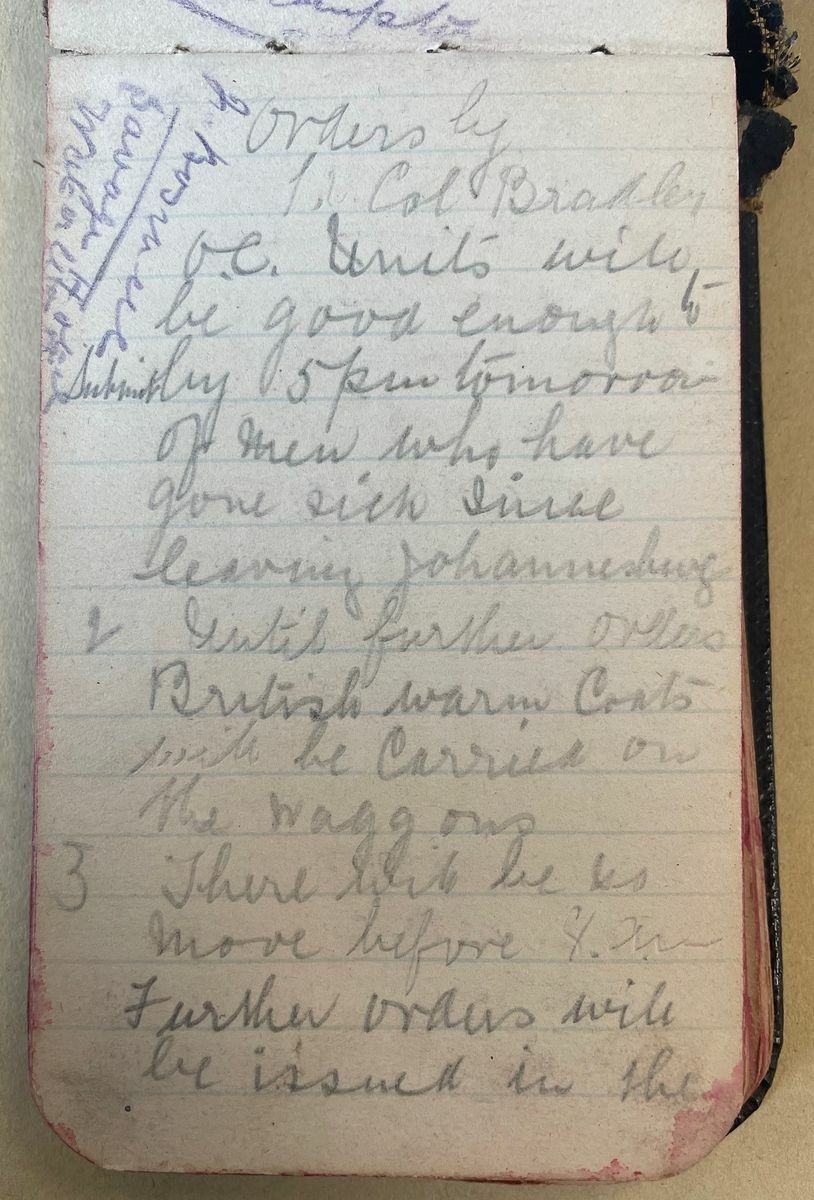 Orders by
Lt. Col Bradley
O.C. Units will
be good enough to
Submit by 5 pm tomorrow
of men who have
gone sick since
leaving Johannesburg
2 Until further orders
British warm Coats
will be Carried on
the waggons
3 There will be no
move before
Further orders will
be issued in the